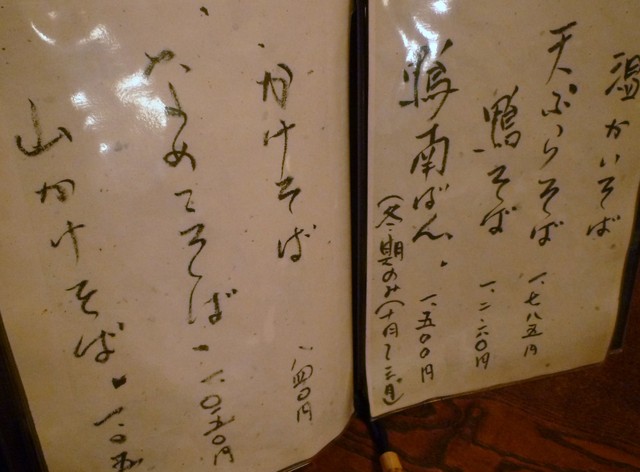 温かいそば
天ぷらそば 一、七八五円
鴨そば 一、二六〇円
鴨南ばん 一、五〇〇円
(冬期のみ(十月〜三月)
かけそば 八四〇円
なめこそば 一、〇五〇円
山かけそば 一、〇五